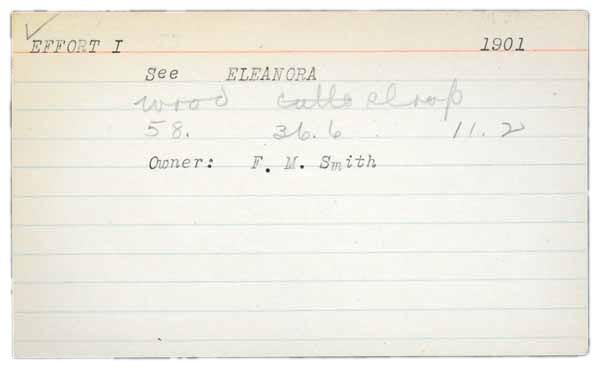 EFFORT I 1901
See ELEANORA
wood cutto sloop
58. 36.6 11.2
Owner: F. M. Smith